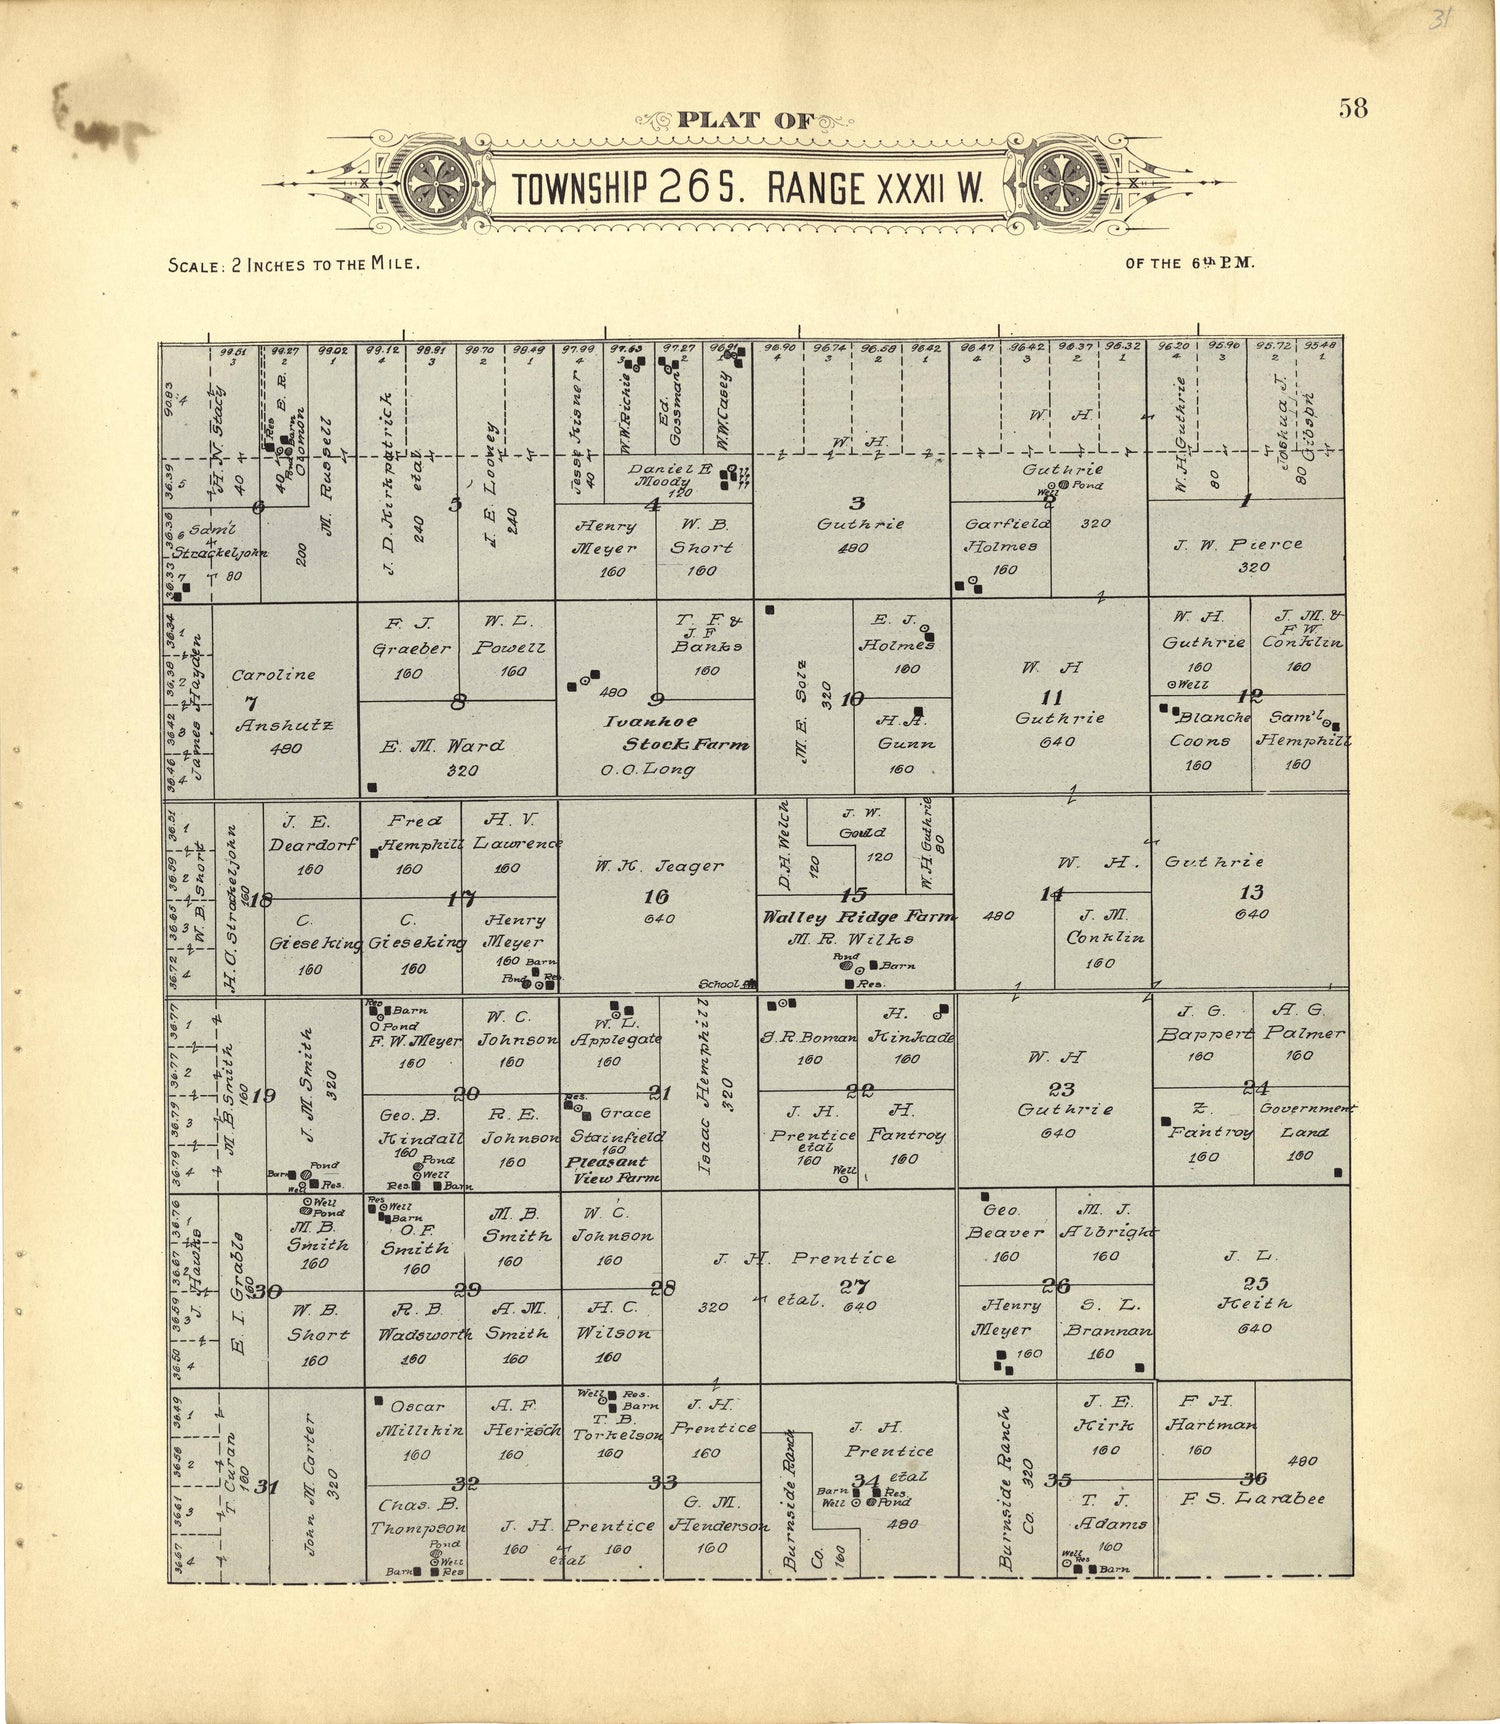 31
58
PLAT OF
TOWNSHIP 26 S. RANGE XXXII W.
SCALE: 2 INCHES TO THE MILE.
OF THE 6th P.M.
99.51 99.27 99.02 99.12 98.91 98.70 98.49 97.99 97.63 97.27 96.91 96.90 96.74 96.58 96.42 96.47 96.42 96.37 95.32 96.20 95.96 95.72 95.48
3 2 1 4 3 2 1 4 3 2 1 4 3 2 1 4 3 2 1 4 3 2 1
90.83
4
36.39
5
36.36
6
36.33
7
H. N. Stacy
40
E. R.
Olomon
40
Res
Barn
Pond
M. Russell
200
6
Sam'l
Strackeljohn
80
J. D. Kirkpatrick
etal
240
5
J. E. Looney
240
Jesse Kisner
40
W.W. Richie
Ed.
Gossman
W.W. Casey
Daniel E
Moody
120
4
Henry
Meyer
160
W. B.
Short
160
W. H.
3
Guthrie
480
W. H
Guthrie
Well
Pond
2
Garfield
Holmes
160
320
W. H. Guthrie
80
Joshua J.
Gibson
80
1
J. W. Pierce
320
36.34
1
36.38
2
36.42
3
36.46
4
James Hayden
Caroline
7
Anshutz
480
F. J.
Graeber
160
W. L.
Powell
160
8
E. M. Ward
320
T. F. &
J. F
Banks
160
480
9
Ivanhoe
Stock Farm
O. O. Long
M. E. Solz
320
E. J.
Holmes
160
10
H. A.
Gunn
160
W. H
11
Guthrie
640
W. H.
Guthrie
160
Well
J. M. &
F W.
Conklin
160
12
Blanche
Coons
160
Sam'l
Hemphill
160
36.51
1
36.59
2
36.65
3
36.72
4
W. B. Short
H. C. Strackeljohn
160
18
J. E.
Deardorf
160
C.
Gieseking
160
Fred
Hemphill
160
H. V.
Lawrence
160
17
C.
Gieseking
160
Henry
Meyer
160
Barn
Pond
Res.
W. K. Jeager
16
640
School
D. H. Welch
120
J. W.
Gould
120
W. H. Guthrie
80
15
Walley Ridge Farm
M. R. Wilks
Pond
Barn
Res.
W. H. Guthrie
14
480
J. M.
Conklin
160
13
640
36.77
1
36.77
2
36.79
3
36.79
4
M. B. Smith
160
19
J. M. Smith
320
Barn
Pond
Well
Res.
Res
Barn
Pond
F. W. Meyer
160
W. C.
Johnson
160
20
Geo. B.
Kindall
160
Pond
Well
Res.
Barn
R. E.
Johnson
160
W. L.
Applegate
160
21
Res.
Grace
Stainfield
160
Pleasant
View Farm
Isaac Hemphill
320
S. R. Boman
160
H.
Kinkade
160
22
J. H.
Prentice
etal
160
Well
H.
Fantroy
160
W. H
23
Guthrie
640
J. G.
Bappert
160
A. G.
Palmer
160
24
Z.
Fantroy
160
Government
Land
160
36.76
1
36.67
2
36.59
3
36.50
4
J. Hawks
E. I. Grable
160
30
Well
Pond
M. B.
Smith
160
W. B.
Short
160
Res
Well
Barn
O. F.
Smith
160
M. B.
Smith
160
29
R. B.
Wadsworth
160
A. M.
Smith
160
W. C.
Johnson
160
28
H. C.
Wilson
160
J. H. Prentice
320
etal.
27
640
Geo.
Beaver
160
M. J.
Albright
160
26
Henry
Meyer
160
S. L.
Brannan
160
J. L.
25
Keith
640
36.49
1
36.56
2
36.61
3
36.67
4
T. Curan
160
31
John M. Carter
320
Oscar
Millikin
160
A. F.
Herzsch
160
32
Chas. B.
Thompson
Pond
Well
Barn
Res
J. H. Prentice
160
etal
160
Well
Res.
Barn
T. B.
Torkelson
160
J. H.
Prentice
160
33
G. M.
Henderson
160
Burnside Ranch
Co.
160
J. H.
Prentice
etal
34
Barn
Res.
Well
Pond
480
Burnside Ranch
Co. 320
35
J. E.
Kirk
160
T. J.
Adams
160
Well
Res
Barn
F H.
Hartman
160
480
36
F. S. Larabee